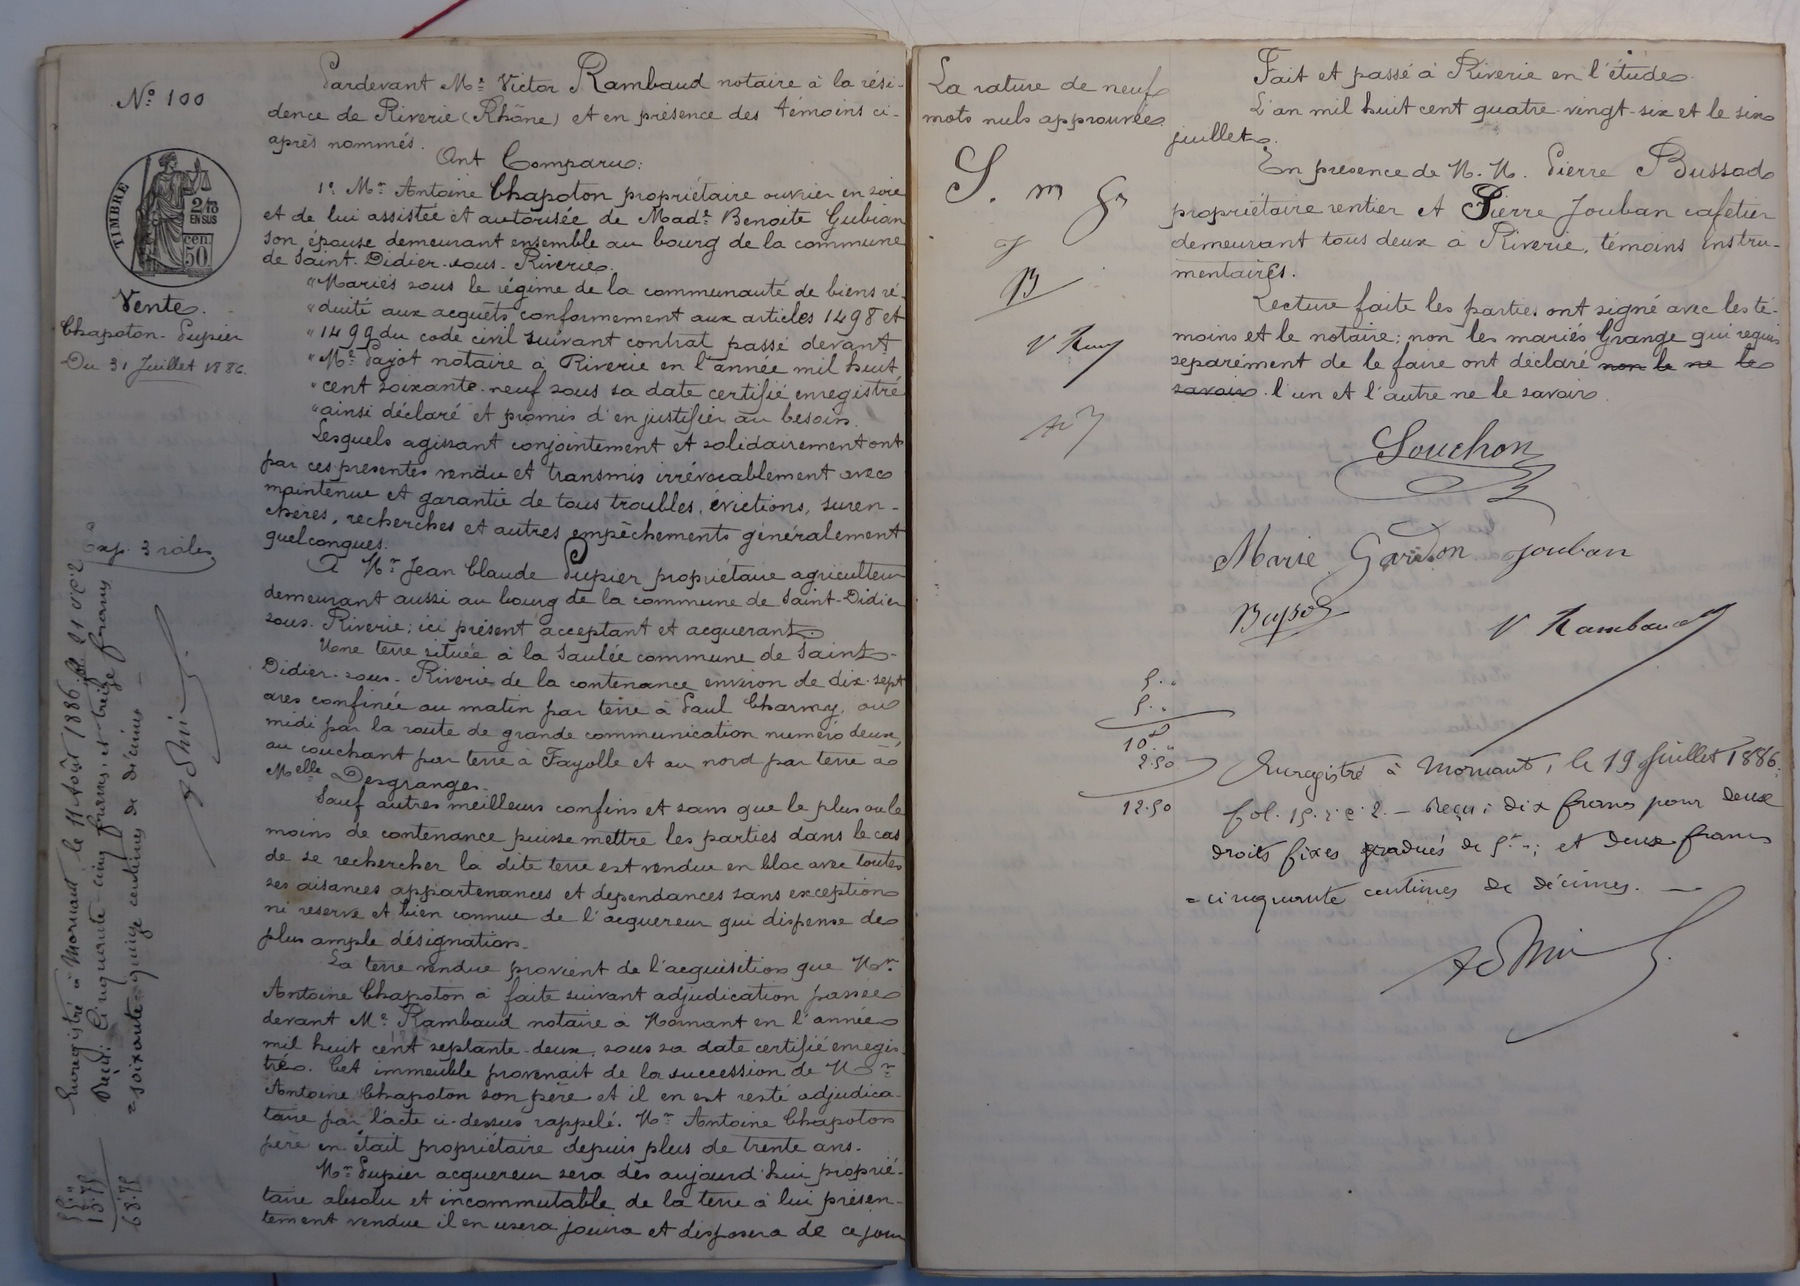 Nº 100
TIMBRE
2/10
EN SUS
cen.
50
Vente
Chapoton - Pupier
Du 31 Juillet 1886.
Exp. 3 rôles
Enregistré à Mornant, le 11 Août 1886, fol. 21 vº c. 2
Reçu: Cinquante-cinq francs, et treize francs
= soixante quinze centimes de décimes -
55 "
13.75
68.75
Pardevant Me Victor Rambaud notaire à la rési-
dence de Riverie (Rhône) et en présence des témoins ci-
après nommés.
Ont Comparu:
1º Mr Antoine Chapoton propriétaire ouvrier en soie
et de lui assistée et autorisée de Made Benoite Gubian
son épouse demeurant ensemble au bourg de la commune
de Saint-Didier-sous-Riverie.
"Mariés sous le régime de la communauté de biens ré-
"duite aux acquêts conformement aux articles 1498 et
"1499 du code civil suivant contrat passé devant
"Me Payot notaire à Riverie en l'année mil huit
"cent soixante-neuf sous sa date certifié enregistré
"ainsi déclaré et promis d'en justifier au besoin.
Lesquels agissant conjointement et solidairement ont
par ces présentes vendu et transmis irrévocablement avec
maintenue et garantie de tous troubles, évictions, suren-
chères, recherches et autres empêchements généralement
quelconques.
A Mr Jean Claude Pupier propriétaire agriculteur
demeurant aussi au bourg de la commune de Saint-Didier
sous-Riverie; ici présent acceptant et acquerant
Une terre située à la Saulée commune de Saint-
Didier-sous-Riverie de la contenance environ de dix-sept
ares confinée au matin par terre à Paul Charmy, au
midi par la route de grande communication numéro deux,
au couchant par terre à Fayolle et au nord par terre à
Melle Desgranges.
Sauf autres meilleurs confins et sans que le plus ou le
moins de contenance puisse mettre les parties dans le cas
de se rechercher la dite terre est vendue en bloc avec toutes
ses aisances appartenances et dependances sans exception
ni reserve et bien connue de l'acquereur qui dispense de
plus ample désignation.
La terre vendue provient de l'acquisition que Mr
Antoine Chapoton a faite suivant adjudication passée
devant Me Rambaud notaire à Mornant en l'année
mil huit cent septante-deux, sous sa date certifié enregis-
tré. Cet immeuble provenait de la succession de Mr
Antoine Chapoton son père et il en est resté adjudica-
taire par l'acte ci-dessus rappelé. Mr Antoine Chapoton
père en était propriétaire depuis plus de trente ans.
Mr Pupier acquereur sera dès aujourd'hui proprié-
taire absolu et incommutable de la terre à lui présen-
tement vendue il en usera jouira et disposera de ce jour
La rature de neuf
mots nuls approuvée
S. m G
J
B
V Ram
Fait et passé à Riverie en l'étude
L'an mil huit cent quatre-vingt-six et le six
juillet.
En présence de M. M. Pierre Bussod
propriétaire rentier et Pierre Jouban cafetier
demeurant tous deux à Riverie, témoins instru-
mentaires.
Lecture faite les parties ont signé avec les té-
moins et le notaire; non les mariés Grange qui requis
separément de le faire ont déclaré non le ne le
savoir. l'un et l'autre ne le savoir.
Souchon
Marie Gardon Jouban
Bussod
V Rambaud
5. "
5. "
10. "
2.50
12.50
Enregistré à Mornant, le 19 Juillet 1886,
fol. 15. vº c. 2. - Reçu: dix francs pour deux
droits fixes gradués de 5f "; et deux francs
= cinquante centimes de décimes. -